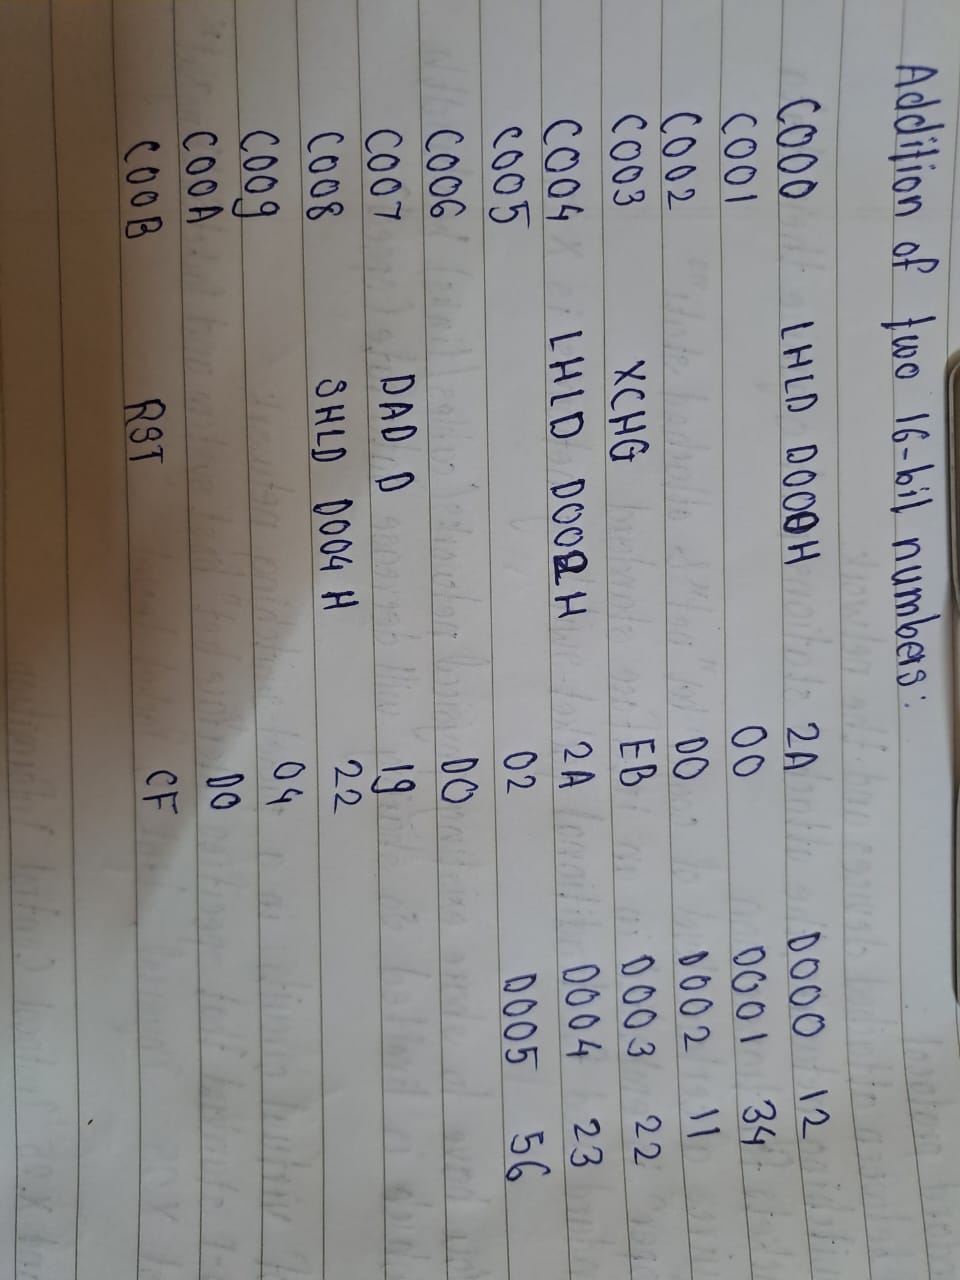 Addition of two 16-bit numbers:
C000 LHLD D000H 2A D000 12
C001 00 D001 34
C002 D0 D002 11
C003 XCHG EB D003 22
C004 LHLD D002H 2A D004 23
C005 02 D005 56
C006 D0
C007 DAD D 19
C008 SHLD D004 H 22
C009 04
C00A D0
C00B RST CF